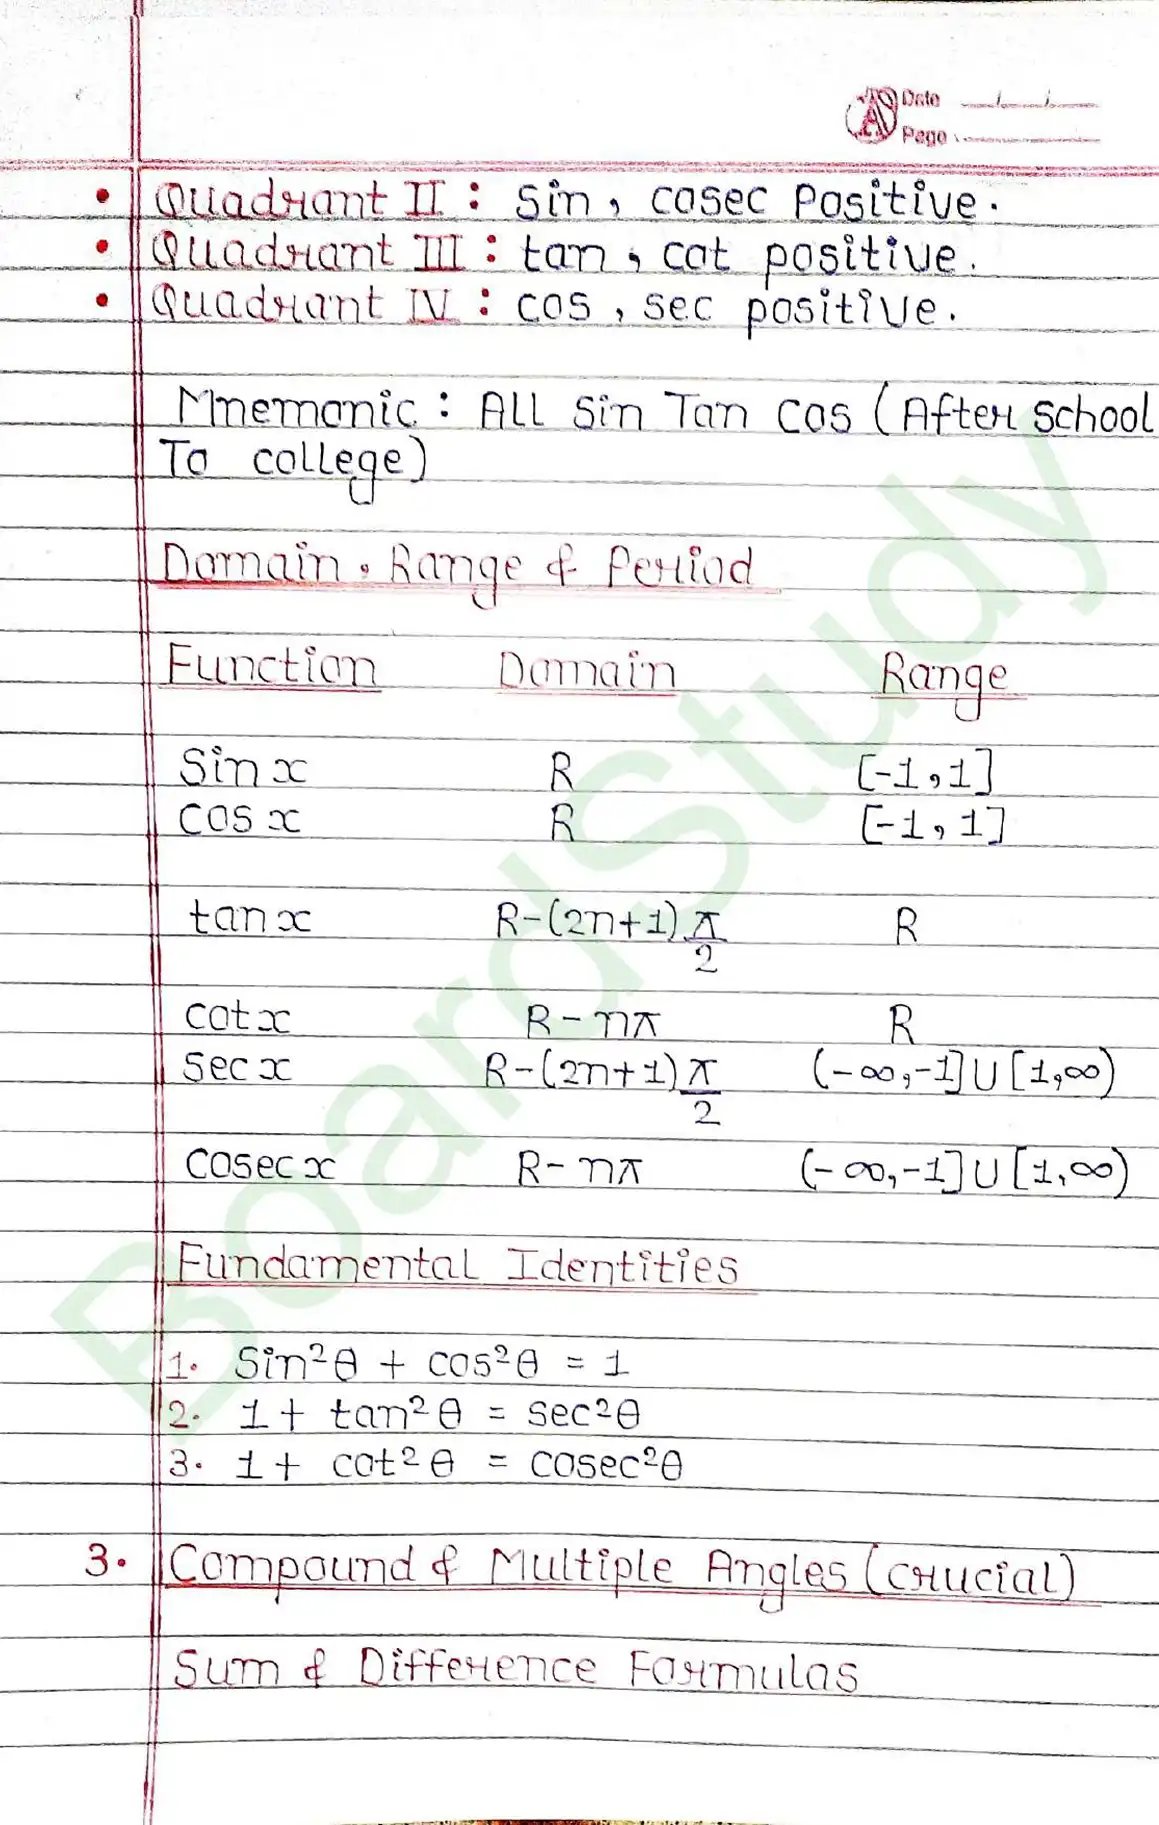 Date
Page
• Quadrant II : Sin, cosec Positive.
• Quadrant III : tan, cot positive.
• Quadrant IV : cos, sec positive.
Mnemonic : ALL Sin Tan Cos (After School
To college)
Domain, Range & Period
Function Domain Range
Sin x R [-1,1]
cos x R [-1,1]
tan x R-(2n+1)π/2 R
cot x R-nπ R
sec x R-(2n+1)π/2 (-∞,-1]∪[1,∞)
cosec x R-nπ (-∞,-1]∪[1,∞)
Fundamental Identities
1. Sin²θ + cos²θ = 1
2. 1 + tan²θ = sec²θ
3. 1 + cot²θ = cosec²θ
3. Compound & Multiple Angles (crucial)
Sum & Difference Formulas
BoardStudy